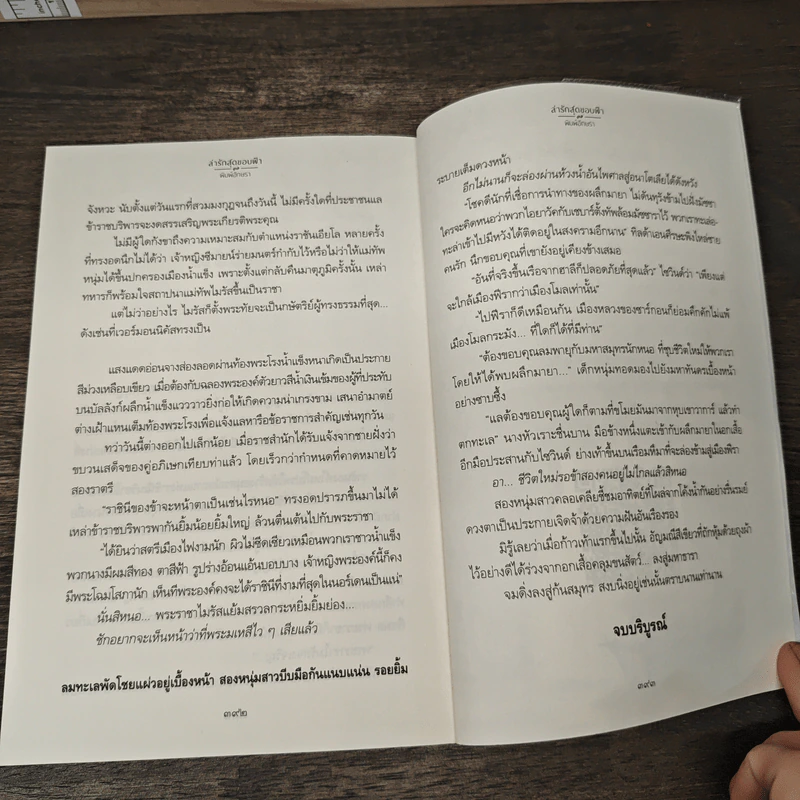 ล่ารักสุดขอบฟ้า
พิมพ์อักษรา
จังหวะ นับตั้งแต่วันแรกที่สวมมงกุฎจนถึงวันนี้ ไม่มีครั้งใดที่ประชาชนแล
ข้าราชบริพารจะงดสรรเสริญพระเกียรติพระคุณ
ไม่มีผู้ใดกังขาถึงความเหมาะสมกับตำแหน่งราชันเฮียโล หลายครั้ง
ที่ทรงอดนึกไม่ได้ว่า เจ้าหญิงซีมายน์ร่ายมนตร์กำกับไว้หรือไม่ว่าให้แม่ทัพ
หนุ่มได้ขึ้นปกครองเมืองน้ำแข็ง เพราะตั้งแต่กลับคืนมาตุภูมิครั้งนั้น เหล่า
ทหารก็พร้อมใจสถาปนาแม่ทัพไมรัสขึ้นเป็นราชา
แต่ไม่ว่าอย่างไร ไมรัสก็ตั้งพระทัยจะเป็นกษัตริย์ผู้ทรงธรรมที่สุด...
ดังเช่นที่เวอร์มอนนิคัสทรงเป็น
แสงแดดอ่อนจางส่องลอดผ่านท้องพระโรงน้ำแข็งหนาเกิดเป็นประกาย
สีม่วงเหลือบเขียว เมื่อต้องกับฉลองพระองค์ตัวยาวสีน้ำเงินเข้มของผู้ที่ประทับ
บนบัลลังก์ผลึกน้ำแข็งแวววาวยิ่งก่อให้เกิดความน่าเกรงขาม เสนาอำมาตย์
ต่างเฝ้าแหนเต็มท้องพระโรงเพื่อแจ้งแลหารือข้อราชการสำคัญเช่นทุกวัน
ทว่าวันนี้ต่างออกไปเล็กน้อย เมื่อราชสำนักได้รับแจ้งจากชายฝั่งว่า
ขบวนเสด็จของคู่อภิเษกเทียบท่าแล้ว โดยเร็วกว่ากำหนดที่คาดหมายไว้
สองราตรี
“ราชินีของข้าจะหน้าตาเป็นเช่นไรหนอ” ทรงอดปรารภขึ้นมาไม่ได้
เหล่าข้าราชบริพารพากันยิ้มน้อยยิ้มใหญ่ ล้วนตื่นเต้นไปกับพระราชา
“ได้ยินว่าสตรีเมืองไฟงามนัก ผิวไม่ซีดเซียวเหมือนพวกเราชาวน้ำแข็ง
พวกนางมีผมสีทอง ตาสีฟ้า รูปร่างอ้อนแอ้นบอบบาง เจ้าหญิงพระองค์นี้ก็คง
มีพระโฉมโสภานัก เห็นทีพระองค์คงจะได้ราชินีที่งามที่สุดในอร์เดนเป็นแน่”
นั่นสิหนอ... พระราชาไมรัสแย้มสรวลกระหยิ่มยิ้มย่อง...
ชักอยากจะเห็นหน้าว่าที่พระมเหสีไว ๆ เสียแล้ว
ลมทะเลพัดโชยแผ่วอยู่เบื้องหน้า สองหนุ่มสาวบีบมือกันแนบแน่น รอยยิ้ม
๓๙๒
ล่ารักสุดขอบฟ้า
พิมพ์อักษรา
ระบายเต็มดวงหน้า
อีกไม่นานก็จะล่องผ่านห้วงน้ำอันไพศาลสู่อนาโตเลียได้ดังหวัง
“โชคดีนักที่เชื่อการนำทางของผลึกมายา ไม่ดันทุรังข้ามไปฝั่งมัชชา
ใครจะคิดหนอว่าพวกไอยาวัคกับเซบาร์ตั้งทัพล้อมมัชชาราไว้ พวกเราทะเล่อ-
ทะล่าเข้าไปมีหวังได้ติดอยู่ในสงครามอีกนาน” ทิลด้าเอนศีรษะพิงไหล่ชาย
คนรัก นึกขอบคุณที่เขายังอยู่เคียงข้างเสมอ
“อันที่จริงขึ้นเรือจากฮาลีก็ปลอดภัยที่สุดแล้ว” ไซวินด์ว่า “เพียงแต่
จะใกล้เมืองฟีรากว่าเมืองโมลเท่านั้น”
“ไปฟีราก็ดีเหมือนกัน เมืองหลวงของชาร์กอนก็ย่อมคึกคักไม่แพ้
เมืองโมลกระมัง... ที่ใดก็ได้ที่มีท่าน”
“ต้องขอบคุณลมพายุกับมหาสมุทรนักหนอ ที่ชุบชีวิตใหม่ให้พวกเรา
โดยให้ได้พบผลึกมายา...” เด็กหนุ่มทอดมองไปยังมหาทันดรเบื้องหน้า
อย่างซาบซึ้ง
“แลต้องขอบคุณผู้ใดก็ตามที่ขโมยมันมาจากหุบเขาวาการ์ แล้วทำ
ตกทะเล” นางหัวเราะชื่นบาน มือข้างหนึ่งแตะเข้ากับผลึกมายาในอกเสื้อ
อีกมือประสานกับไซวินด์ ย่างเท้าขึ้นบนเรือมหึมาที่จะล่องข้ามสู่เมืองฟีรา
อา... ชีวิตใหม่รอข้าสองคนอยู่ไม่ไกลแล้วสิหนอ
สองหนุ่มสาวคลอเคลียชี้ชมอาทิตย์ที่โผล่จากโค้งน้ำกันอย่างรื่นรมย์
ดวงตาเป็นประกายเจิดจ้าด้วยความฝันอันเรืองรอง
มิรู้เลยว่าเมื่อก้าวเท้าแรกขึ้นไปนั้น อัญมณีสีเขียวที่ถักหุ้มด้วยถุงผ้า
ไว้อย่างดีได้ร่วงจากอกเสื้อคลุมขนสัตว์... ลงสู่มหาธารา
จมดิ่งลงสู่ก้นสมุทร สงบนิ่งอยู่เช่นนั้นตราบนานเท่านาน
จบบริบูรณ์
๓๙๓